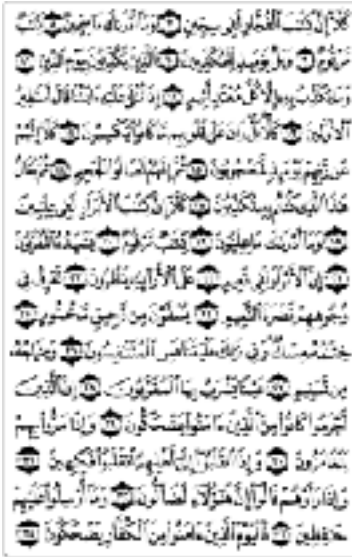 كَلَّا إِنَّ كِتَٰبَ ٱلْفُجَّارِ لَفِى سِجِّينٍ ٧ وَمَآ أَدْرَىٰكَ مَا سِجِّينٌ ٨ كِتَٰبٌ
مَّرْقُومٌ ٩ وَيْلٌ يَوْمَئِذٍ لِّلْمُكَذِّبِينَ ١٠ ٱلَّذِينَ يُكَذِّبُونَ بِيَوْمِ ٱلدِّينِ ١١
وَمَا يُكَذِّبُ بِهِۦٓ إِلَّا كُلُّ مُعْتَدٍ أَثِيمٍ ١٢ إِذَا تُتْلَىٰ عَلَيْهِ ءَايَٰتُنَا قَالَ أَسَٰطِيرُ
ٱلْأَوَّلِينَ ١٣ كَلَّا بَلْ رَانَ عَلَىٰ قُلُوبِهِم مَّا كَانُوا۟ يَكْسِبُونَ ١٤ كَلَّآ إِنَّهُمْ
عَن رَّبِّهِمْ يَوْمَئِذٍ لَّمَحْجُوبُونَ ١٥ ثُمَّ إِنَّهُمْ لَصَالُوا۟ ٱلْجَحِيمِ ١٦ ثُمَّ يُقَالُ
هَٰذَا ٱلَّذِى كُنتُم بِهِۦ تُكَذِّبُونَ ١٧ كَلَّآ إِنَّ كِتَٰبَ ٱلْأَبْرَارِ لَفِى عِلِّيِّينَ
١٨ وَمَآ أَدْرَىٰكَ مَا عِلِّيُّونَ ١٩ كِتَٰبٌ مَّرْقُومٌ ٢٠ يَشْهَدُهُ ٱلْمُقَرَّبُونَ
٢١ إِنَّ ٱلْأَبْرَارَ لَفِى نَعِيمٍ ٢٢ عَلَى ٱلْأَرَآئِكِ يَنظُرُونَ ٢٣ تَعْرِفُ فِى
وُجُوهِهِمْ نَضْرَةَ ٱلنَّعِيمِ ٢٤ يُسْقَوْنَ مِن رَّحِيقٍ مَّخْتُومٍ ٢٥
خِتَٰمُهُۥ مِسْكٌ وَفِى ذَٰلِكَ فَلْيَتَنَافَسِ ٱلْمُتَنَٰفِسُونَ ٢٦ وَمِزَاجُهُۥ
مِن تَسْنِيمٍ ٢٧ عَيْنًا يَشْرَبُ بِهَا ٱلْمُقَرَّبُونَ ٢٨ إِنَّ ٱلَّذِينَ
أَجْرَمُوا۟ كَانُوا۟ مِنَ ٱلَّذِينَ ءَامَنُوا۟ يَضْحَكُونَ ٢٩ وَإِذَا مَرُّوا۟ بِهِمْ
يَتَغَامَزُونَ ٣٠ وَإِذَا ٱنقَلَبُوٓا۟ إِلَىٰٓ أَهْلِهِمُ ٱنقَلَبُوا۟ فَكِهِينَ ٣١
وَإِذَا رَأَوْهُمْ قَالُوٓا۟ إِنَّ هَٰٓؤُلَآءِ لَضَآلُّونَ ٣٢ وَمَآ أُرْسِلُوا۟ عَلَيْهِمْ
حَٰفِظِينَ ٣٣ فَٱلْيَوْمَ ٱلَّذِينَ ءَامَنُوا۟ مِنَ ٱلْكُفَّارِ يَضْحَكُونَ ٣٤